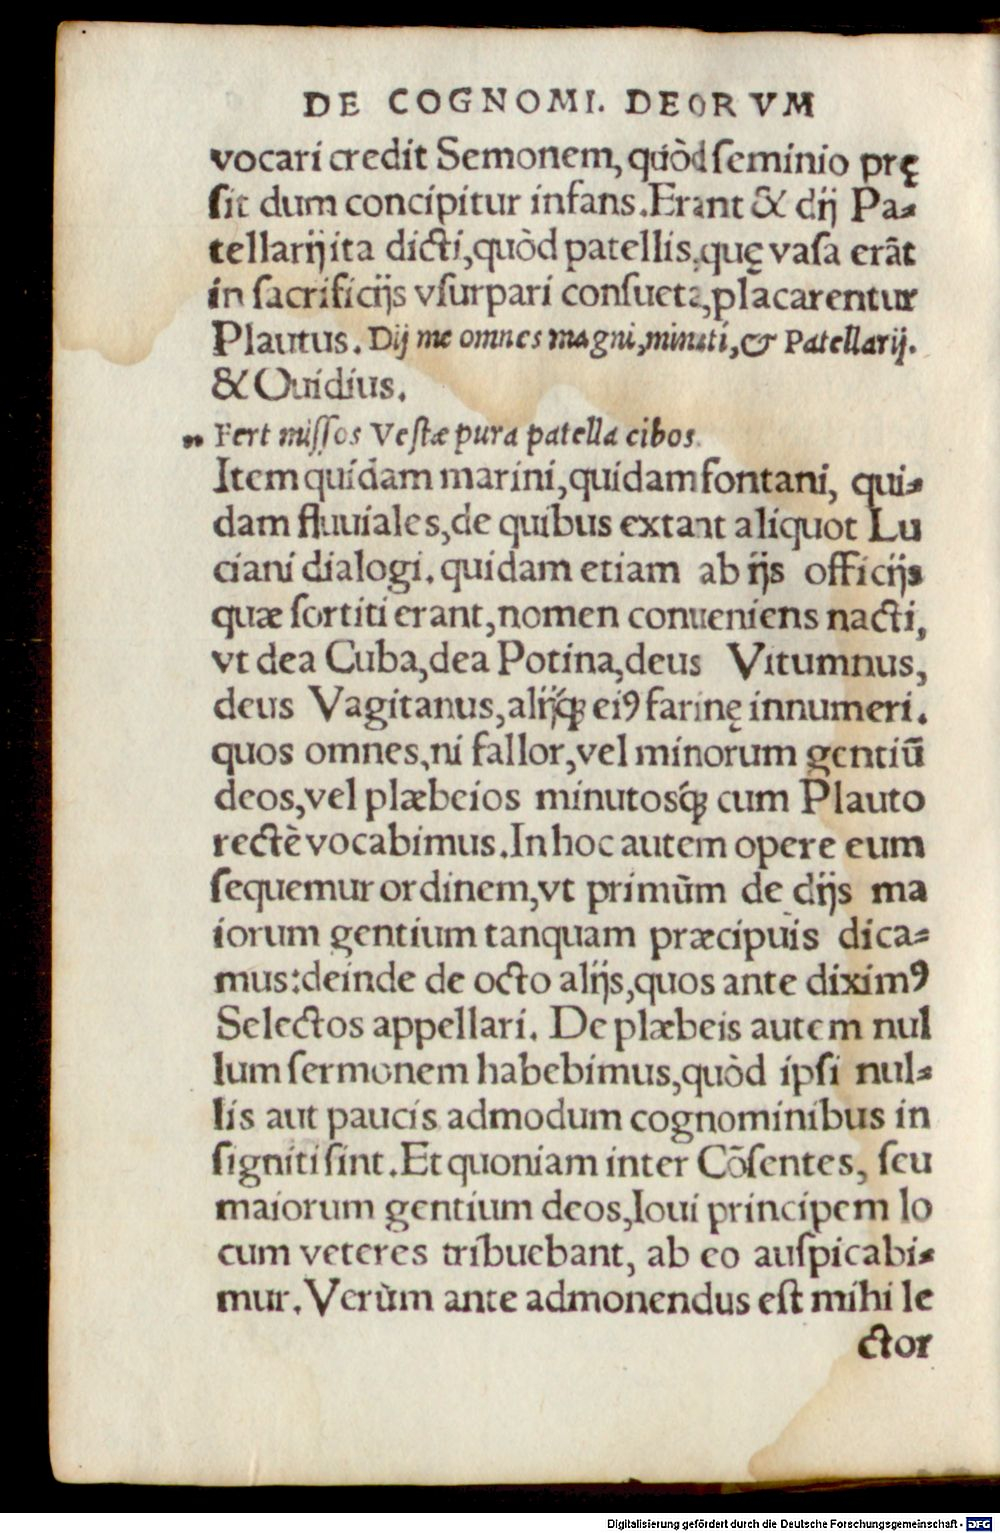 DE COGNOMI. DEORVM
vocari credit Semonem, quòd seminio prę
sit dum concipitur infans. Erant & dij Pa-
tellarij ita dicti, quòd patellis, quę vasa erãt
in sacrificijs vsurpari consueta, placarentur
Plautus. Dij me omnes magni, minuti, & Patellarij.
& Ouidius.
„ Fert missos Vestæ pura patella cibos.
Item quidam marini, quidam fontani, qui-
dam fluuiales, de quibus extant aliquot Lu
ciani dialogi. quidam etiam ab ijs officijs
quæ sortiti erant, nomen conueniens nacti,
vt dea Cuba, dea Potina, deus Vitumnus,
deus Vagitanus, alijq́; eiꝰ farinę innumeri.
quos omnes, ni fallor, vel minorum gentiũ
deos, vel plæbeios minutosq́; cum Plauto
rectè vocabimus. In hoc autem opere eum
sequemur ordinem, vt primũm de dijs ma
iorum gentium tanquam præcipuis dica-
mus: deinde de octo alijs, quos ante diximꝰ
Selectos appellari. De plæbeis autem nul
lum sermonem habebimus, quòd ipsi nul-
lis aut paucis admodum cognominibus in
signiti sint. Et quoniam inter Cõsentes, seu
maiorum gentium deos, Ioui principem lo
cum veteres tribuebant, ab eo auspicabi-
mur. Verùm ante admonendus est mihi le
ctor
Digitalisierung gefördert durch die Deutsche Forschungsgemeinschaft - DFG